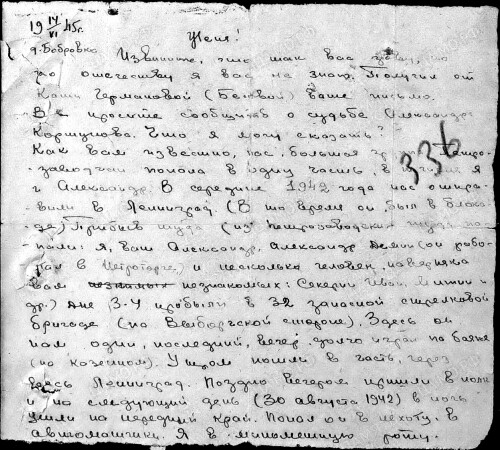 19 14/VI 45г.
Нет!
д. Бобровка
Извините, что так вас, но
по отечеству я вас не знаю. Получил от
Кати Германовой (Беловой) Ваше письмо.
Вы просите сообщить о судьбе Александра
Коршунова. Что я могу сказать?
Как вам известно, нас, большая Петро-
заводчан попала в одну часть, в я
и Александр. В середине 1942 года нас отпра-
вили в Ленинград. (В то время он был в блока-
де) Прибыв туда (из петрозаводских туда по-
пали: я, ваш Александр, Александр Демин (он рабо-
тал в Петроторге) и несколько человек, наверняка
вам незнакомых: Секерин и
др.) Дне 3-4 пробыли в 32 запасной стрелковой
бригаде (на Выборгской стороне). Здесь он
нам один, последний, вечер долго играл на баяне
(на казенном). Утром пошли в часть, через
весь Ленинград. Поздно вечером пришли в полк
и на следующий день (30 августа 1942) в ночь
ушли на передний край. Попал он в пехоту, в
автоматчики. Я в минометную роту.
336